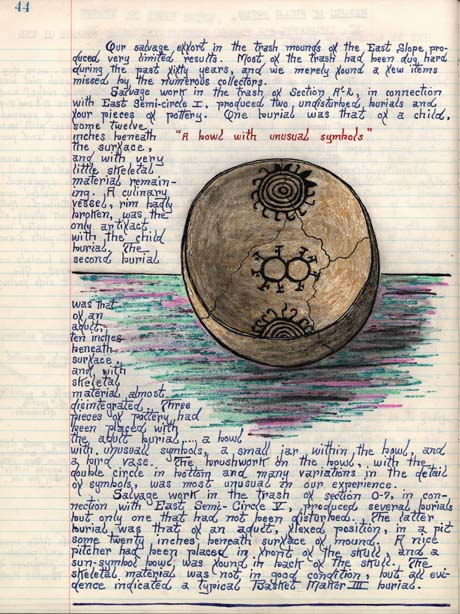 44
Our salvage effort in the trash mounds of the East Slope, pro-
duced very limited results. Most of the trash had been dug hard
during the past fifty years, and we merely found a few items
missed by the numerous collectors.
Salvage work in the trash of Section A-k, in connection
with East Semi-circle I, produced two undisturbed, burials and
four pieces of pottery. One burial was that of a child,
some twelve
inches beneath
the surface,
and with very
little skeletal
material remain-
ing. A culinary
vessel, rim badly
broken, was the
only artifact
with the child
burial. The
second burial
"A bowl with unusual symbols"
was that
of an
adult,
ten inches
beneath
surface,
and with
skeletal
material almost
disintegrated. Three
pieces of pottery had
been placed with
the adult burial.... a bowl
with unusual symbols, a small jar within the bowl, and
a bird vase. The brushwork on the bowl, with the
double circle in bottom and many variations in the detail
of symbols, was most unusual in our experience.
Salvage work in the trash of section O-7, in con-
nection with East Semi-Circle V, produced several burials
but only one that had not been disturbed. The latter
burial was that of an adult, flexed position, in a pit
some twenty inches beneath surface of mound. A nice
pitcher had been placed in front of the skull, and a
sun-symbol bowl was found in back of the skull. The
skeletal material was not in good condition, but all evi-
dence indicated a typical Basket Maker III burial.